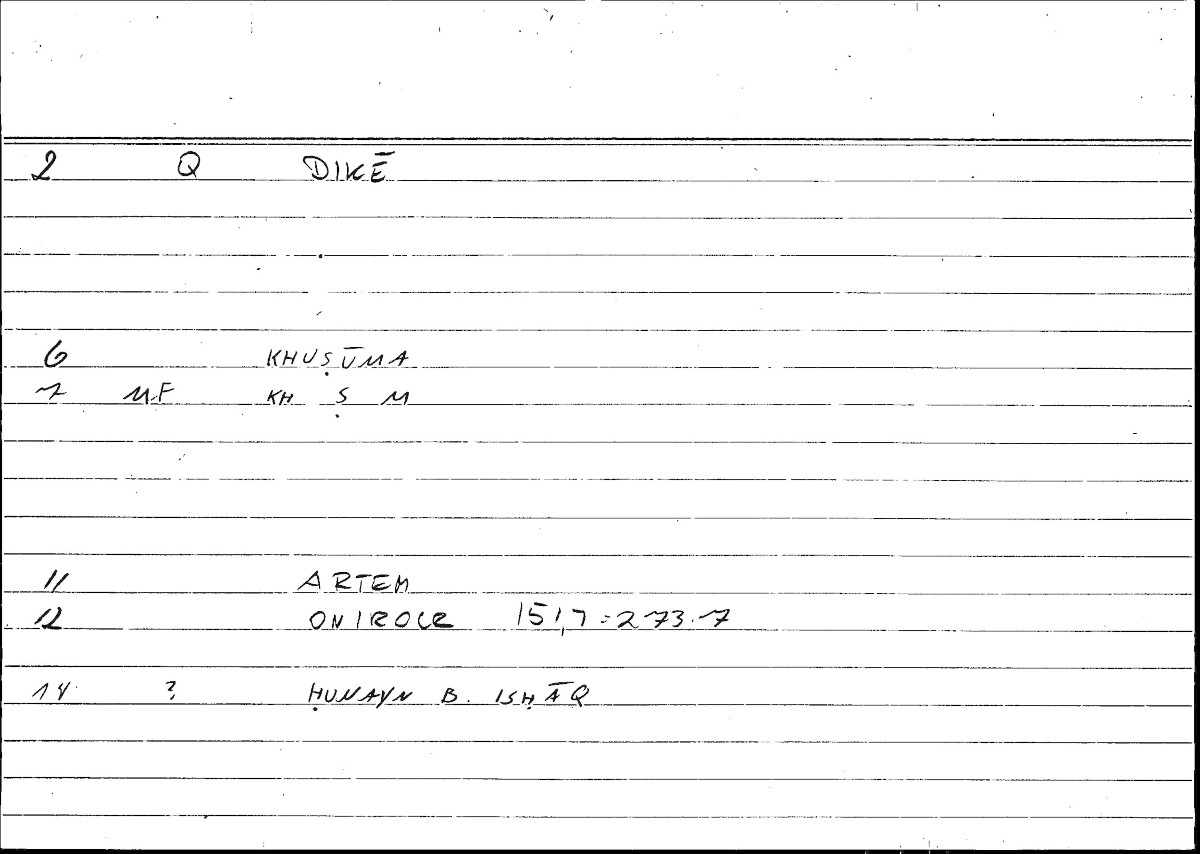 2 Q DIKĒ
6 KHUṢŪMA
7 MF KH Ṣ M
11 ARTEM
12 ONIROCR 151,7 = 273.7
14 ? ḤUNAYN B. ISḤĀQ